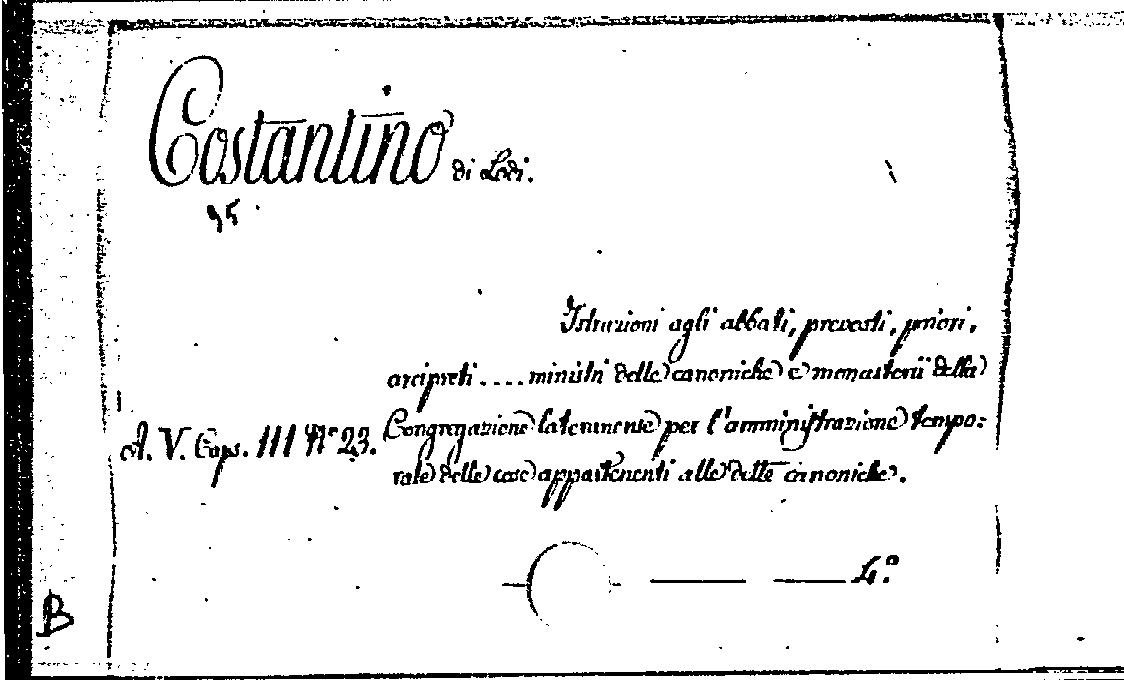 Costantino di Lodi.
95
Istruzioni agli abbati, prevosti, priori,
arcipreti .... ministri delle canoniche e monasterii della
A. V. Caps. III N° 23. Congregazione lateranense per l'amministrazione tempo:
rale delle cose appartenenti alle dette canoniche.
4.°
B